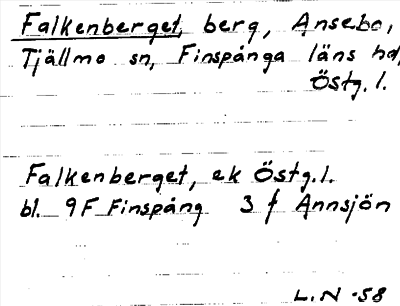 Falkenberget, berg, Ansebo,
Tjällmo sn, Finspånga läns hd,
Östg. l.
Falkenberget, ek Östg. l.
bl. 9F Finspång 3 f Annsjön
L.N -58